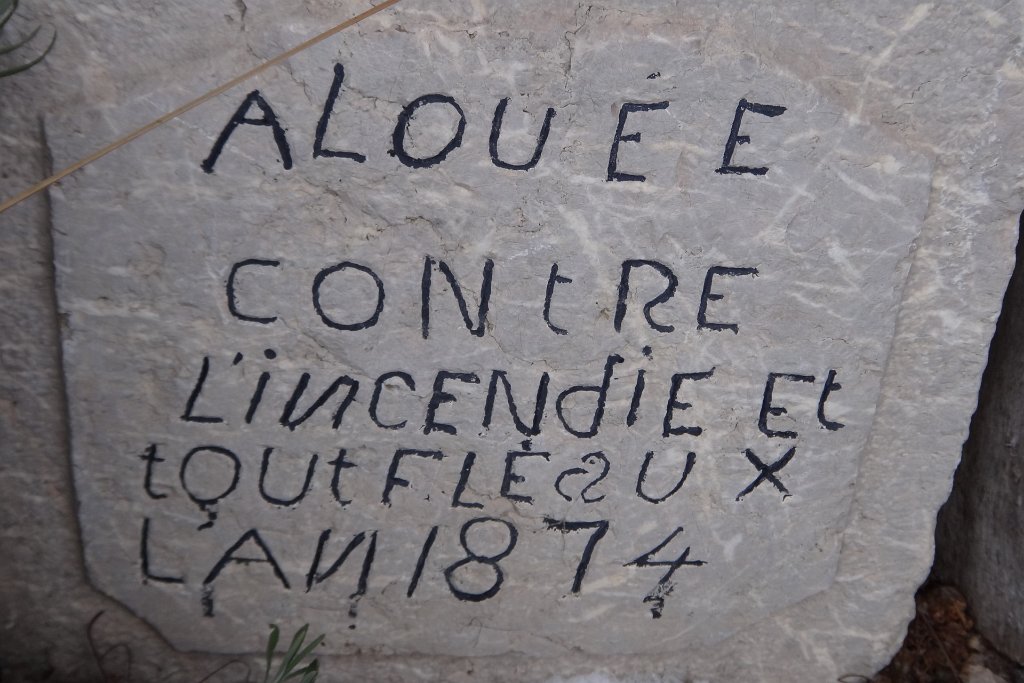 ALOUÉE
CONtRE
L'iNCENdiE Et
tOUt FLÈSUX
LAN 1874